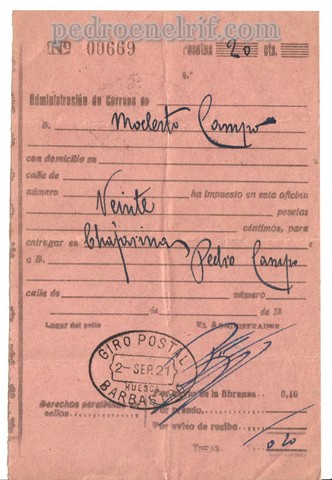 pedroenelrif.com
Nº 00669 Pesetas 20 cts.
Administración de Correos de
D. Modesto Campo
con domicilio en
calle de
número ha impuesto en esta oficina
Veinte pesetas
céntimos, para
entregar en Chafarinas
a D. Pedro Campo
calle de número
de de 19
Lugar del sello EL ADMINISTRADOR
GIRO POSTAL
2- SEP. 21
HUESCA
BARBASTRO
Derechos percibidos
sellos
Por de la libranza 0,10
Por
Por aviso de recibo
0 20